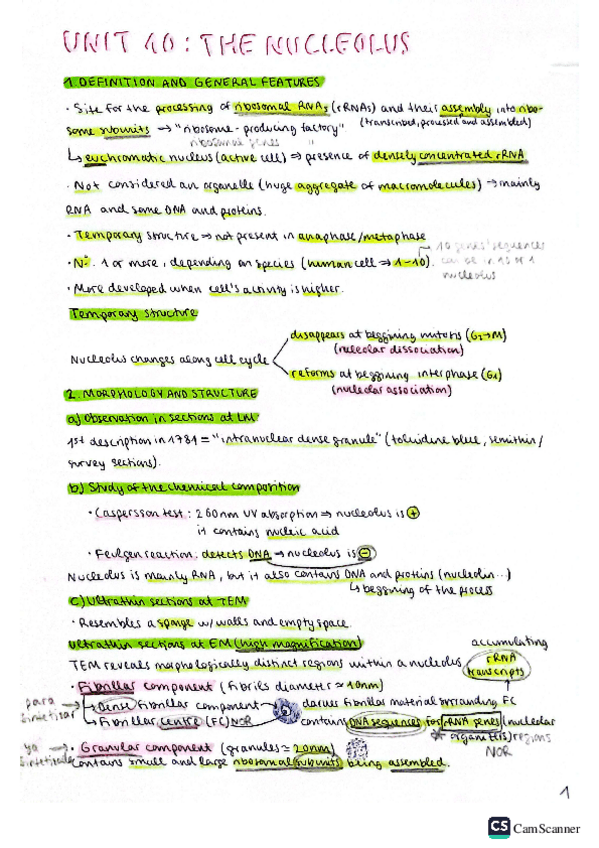 UNIT 10: THE NUCLEOLUS
1. DEFINITION AND GENERAL FEATURES
· Site for the processing of ribosomal RNAs (rRNAs) and their assembly into ribo-
(transcribed, processed and assembled)
some subunits → "ribosome-producing factory"
ribosomal genes "
↳ euchromatic nucleus (active cell) ⇒ presence of densely concentrated rRNA
· Not considered an organelle (huge aggregate of macromolecules) → mainly
RNA and some DNA and proteins.
· Temporary structure ⇒ not present in anaphase/metaphase
· Nº: 1 or more, depending on species (human cell ⇒ 1-10).
→ 10 genes' sequences
can be in 10 or 1
nucleolus
· More developed when cell's activity is higher.
Temporary structure
Nucleolus changes along cell cycle
disappears at beggining mitosis (G2→M)
(nucleolar dissociation)
reforms at beggining interphase (G1)
(nucleolar association)
2. MORPHOLOGY AND STRUCTURE
a) Observation in sections at LM
1st description in 1781 = "intranuclear dense granule" (toluidine blue, semithin/
survey sections).
b) Study of the chemical composition
· Caspersson test: 260nm UV absorption ⇒ nucleolus is +
it contains nucleic acid
· Feulgen reaction: detects DNA → nucleolus is -
Nucleolus is mainly RNA, but it also contains DNA and proteins (nucleolin...)
↳ beggining of the process
c) Ultrathin sections at TEM
· Resembles a sponge w/ walls and empty space.
Ultrathin sections at EM (high magnification)
accumulating
rRNA
transcripts
TEM reveals morphologically distinct regions within a nucleolus
· Fibrillar component (fibrils diameter ≃ 10nm)
para
sintetizar
→ Dense fibrillar component
darker fibrillar material surrounding FC
→ Fibrillar centre (FC) NOR
contains DNA sequences for rRNA genes (nucleolar
organizers) regions
NOR
ya
sintetizado
· Granular component (granules ≃ 20nm)
contains small and large ribosomal subunits being assembled.
1
CS CamScanner